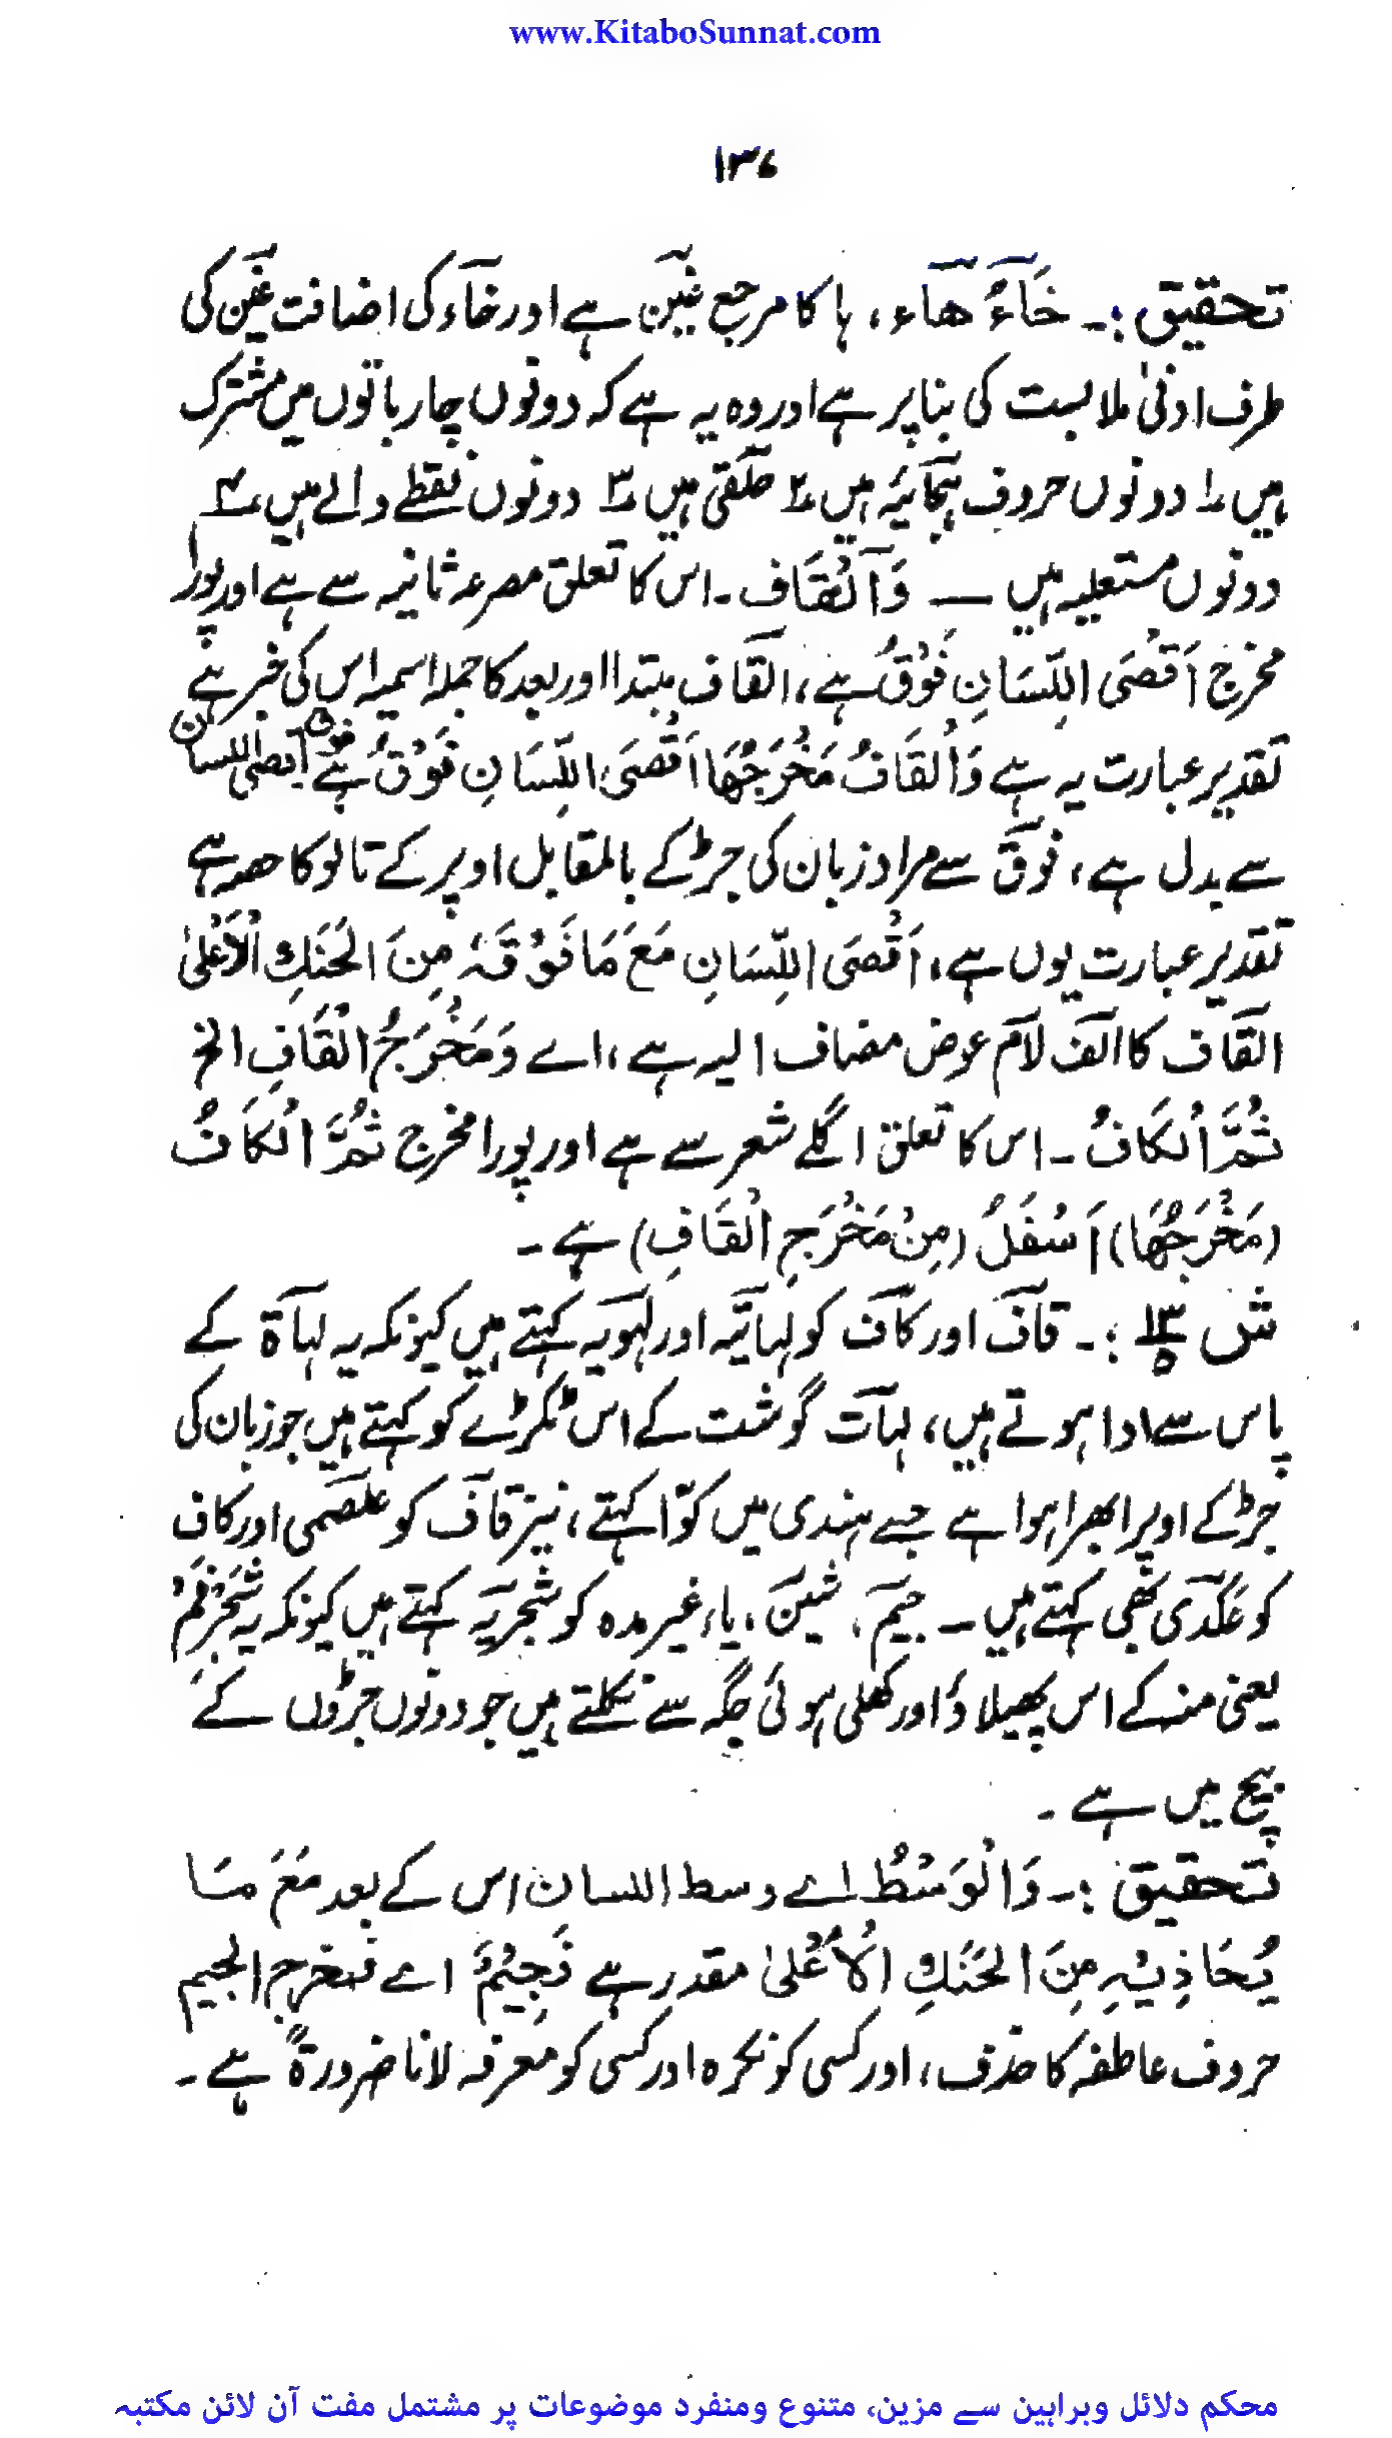 www.KitaboSunnat.com
۱۳۶
تحقیق :۔ خَآءُ ھَآء، ہا کا مرجع غین ہے اور خاء کی اضافت غین کی
طرف ادنیٰ ملابست کی بنا پر ہے اور وہ یہ ہے کہ دونوں چار باتوں میں مشترک
ہیں ۱ دونوں حروف ہجائیہ ہیں ۲ حلقی ہیں ۳ دونوں نقطے والے ہیں ۴
دونوں مستعلیہ ہیں — وَالْقَاف ۔ اس کا تعلق مصرعہ ثانیہ سے ہے اور پورا
مخرج اَقْصَی اللِّسَانِ فَوْقُ ہے، القاف مبتدا اور بعد کا جملہ اسمیہ اس کی خبر ہے
تقدیر عبارت یہ ہے وَالْقَافُ مَخْرَجُهَا اَقْصَی اللِّسَانِ فَوْقُ ہے فوق اقصی اللسان
سے بدل ہے، فوق سے مراد زبان کی جڑ کے بالمقابل اوپر کے تالو کا حصہ ہے
تقدیر عبارت یوں ہے، اَقْصَی اللِّسَانِ مَعَ مَا فَوْقَہٗ مِنَ الْحَنَكِ الْاَعْلیٰ
القاف کا الف لام عوض مضاف الیہ ہے، اے وَمَخْرَجُ الْقَافِ الخ
ثُمَّ الْکَافُ ۔ اس کا تعلق اگلے شعر سے ہے اور پورا مخرج ثُمَّ الْکَافُ
(مَخْرَجُهَا) اَسْفَلُ (مِنْ مَخْرَجِ الْقَافِ) ہے ۔
ش ۱۳/۵ :۔ قاف اور کاف کو لہاتیہ اور لہویہ کہتے ہیں کیونکہ یہ لہاۃ کے
پاس سے ادا ہوتے ہیں، لہات گوشت کے اس ٹکڑے کو کہتے ہیں جو زبان کی
جڑ کے اوپر ابھرا ہوا ہے جسے ہندی میں کوّا کہتے، نیز قاف کو غلصمی اور کاف
کو عکدی بھی کہتے ہیں ۔ جیم، شین، یاء غیر مدہ کو شجریہ کہتے ہیں کیونکہ یہ شَجَرِ فَمْ
یعنی منہ کے اس پھیلاؤ اور کھلی ہوئی جگہ سے نکلتے ہیں جو دونوں جبڑوں کے
بیچ میں ہے ۔
تحقیق :۔ وَالْوَسْطُ اے وسط اللسان اس کے بعد مَعَ مَا
یُحَاذِیْہِ مِنَ الْحَنَكِ الْاَعْلیٰ مقدر ہے فَجِیْمُ اے فمخرج الجیم
حروف عاطفہ کا حذف، اور کسی کو نکرہ اور کسی کو معرفہ لانا ضرورۃً ہے ۔
محکم دلائل وبراہین سے مزین، متنوع ومنفرد موضوعات پر مشتمل مفت آن لائن مکتبہ